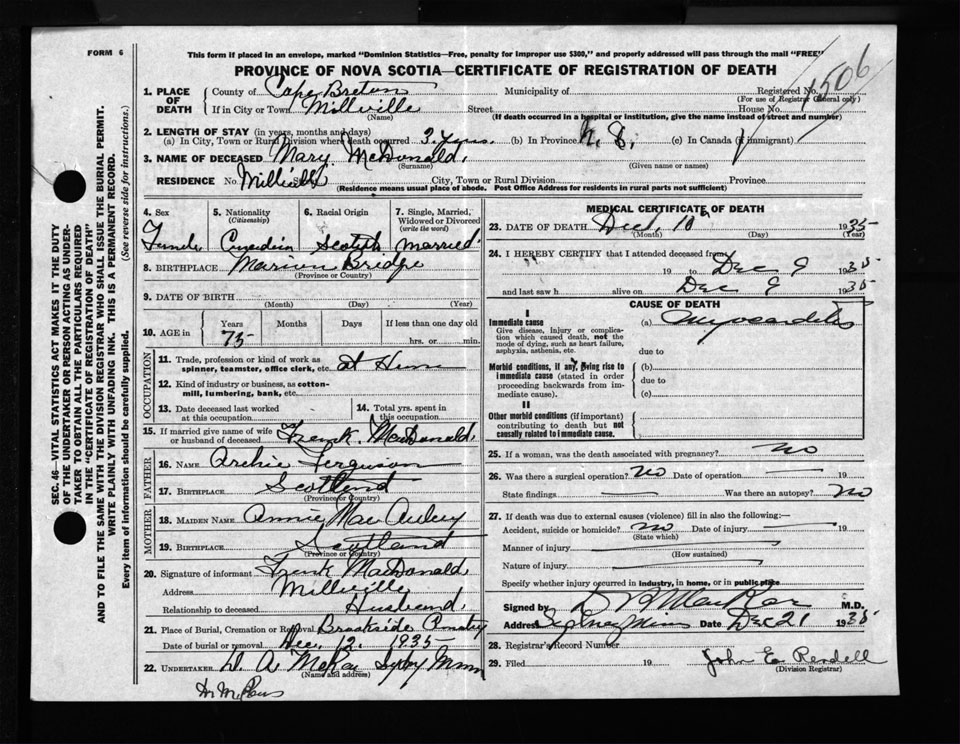 FORM 6
This form if placed in an envelope, marked "Dominion Statistics—Free, penalty for improper use $300," and properly addressed will pass through the mail "FREE"
PROVINCE OF NOVA SCOTIA—CERTIFICATE OF REGISTRATION OF DEATH
1506
1. PLACE OF DEATH
County of Cape Breton Municipality of Registered No.
(For use of Registrar General only)
If in City or Town Millville Street House No.
(Name) (If death occurred in a hospital or institution, give the name instead of street and number)
2. LENGTH OF STAY (in years, months and days)
(a) In City, Town or Rural Division where death occurred 3 yrs. (b) In Province N. S. (c) In Canada (if immigrant)
3. NAME OF DECEASED Mary McDonald.
(Surname) (Given name or names)
RESIDENCE No. Millville Street City, Town or Rural Division Province
(Residence means usual place of abode. Post Office Address for residents in rural parts not sufficient)
4. Sex 5. Nationality (Citizenship) 6. Racial Origin 7. Single, Married, Widowed or Divorced (write the word)
Female Canadian Scotch married.
8. BIRTHPLACE Marion Bridge
(Province or Country)
9. DATE OF BIRTH
(Month) (Day) (Year)
10. AGE in Years Months Days If less than one day old
75 hrs. or min.
OCCUPATION
11. Trade, profession or kind of work as spinner, teamster, office clerk, etc. at Home
12. Kind of industry or business, as cotton-mill, lumbering, bank, etc.
13. Date deceased last worked at this occupation
14. Total yrs. spent in this occupation
15. If married give name of wife or husband of deceased Frank MacDonald.
FATHER
16. NAME Archie Ferguson
17. BIRTHPLACE Scotland
(Province or Country)
MOTHER
18. MAIDEN NAME Annie Mac Auley
19. BIRTHPLACE Scotland
(Province or Country)
20. Signature of informant Frank MacDonald
Address Millville
Relationship to deceased Husband.
21. Place of Burial, Cremation or Removal Brookside Cemetery
Date of burial or removal Dec. 12. 1935
22. UNDERTAKER A McKay Sydney Mines
(Name and address)
MEDICAL CERTIFICATE OF DEATH
23. DATE OF DEATH Dec, 10th 1935
(Month) (Day) (Year)
24. I HEREBY CERTIFY that I attended deceased from
19 to Dec 9 1935
and last saw h alive on Dec 9 1935
CAUSE OF DEATH
I
Immediate cause
Give disease, injury or complication which caused death, not the mode of dying, such as heart failure, asphyxia, asthenia, etc.
(a) Myocarditis
due to
Morbid conditions, if any, giving rise to immediate cause (stated in order proceeding backwards from immediate cause).
(b)
due to
(c)
II
Other morbid conditions (if important) contributing to death but not causally related to immediate cause.
25. If a woman, was the death associated with pregnancy? no
26. Was there a surgical operation? no Date of operation 19
State findings Was there an autopsy? no
27. If death was due to external causes (violence) fill in also the following:
Accident, suicide or homicide? no Date of injury 19
(State which)
Manner of injury
(How sustained)
Nature of injury
Specify whether injury occurred in industry, in home, or in public place
Signed by M.D.
Address Sydney Mines Date Dec 21 1935
28. Registrar's Record Number
29. Filed 19 John E. Rendell
(Division Registrar)
SEC. 46—VITAL STATISTICS ACT MAKES IT THE DUTY
OF THE UNDERTAKER OR PERSON ACTING AS UNDER-
TAKER TO OBTAIN ALL THE PARTICULARS REQUIRED
IN THE "CERTIFICATE OF REGISTRATION OF DEATH"
AND TO FILE THE SAME WITH THE DIVISION REGISTRAR WHO SHALL ISSUE THE BURIAL PERMIT.
WRITE PLAINLY WITH UNFADING INK. THIS IS A PERMANENT RECORD.
Every item of information should be carefully supplied. (See reverse side for instructions.)